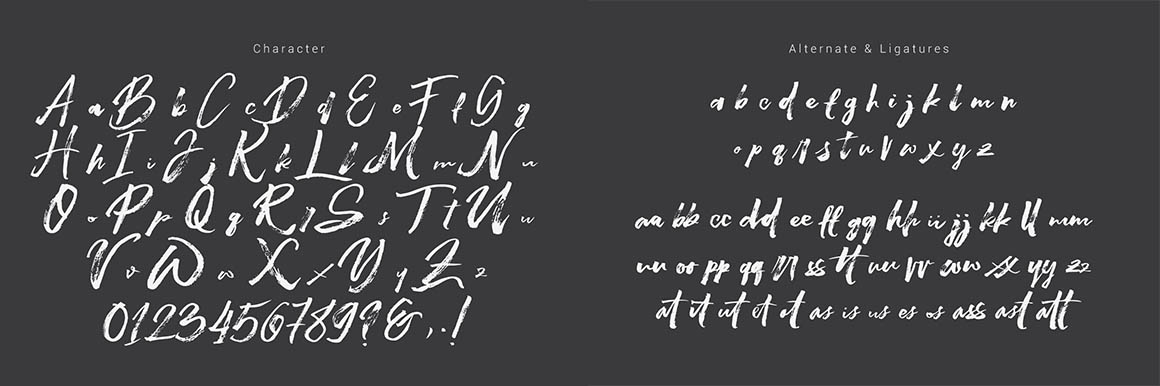 Character
A a B b C c D d E e F f G g
H h I i J j K k L l M m N n
O o P p Q q R r S s T t U u
V v W w X x Y y Z z
0123456789?&,.!
Alternate & Ligatures
a b c d e f g h i j k l m n
o p q r s t u v w x y z
aa bb cc dd ee ff gg hh ii jj kk ll mm
nn oo pp qq rr ss tt uu vv ww xx yy zz
at it ut et ot as is us es os ass ast att